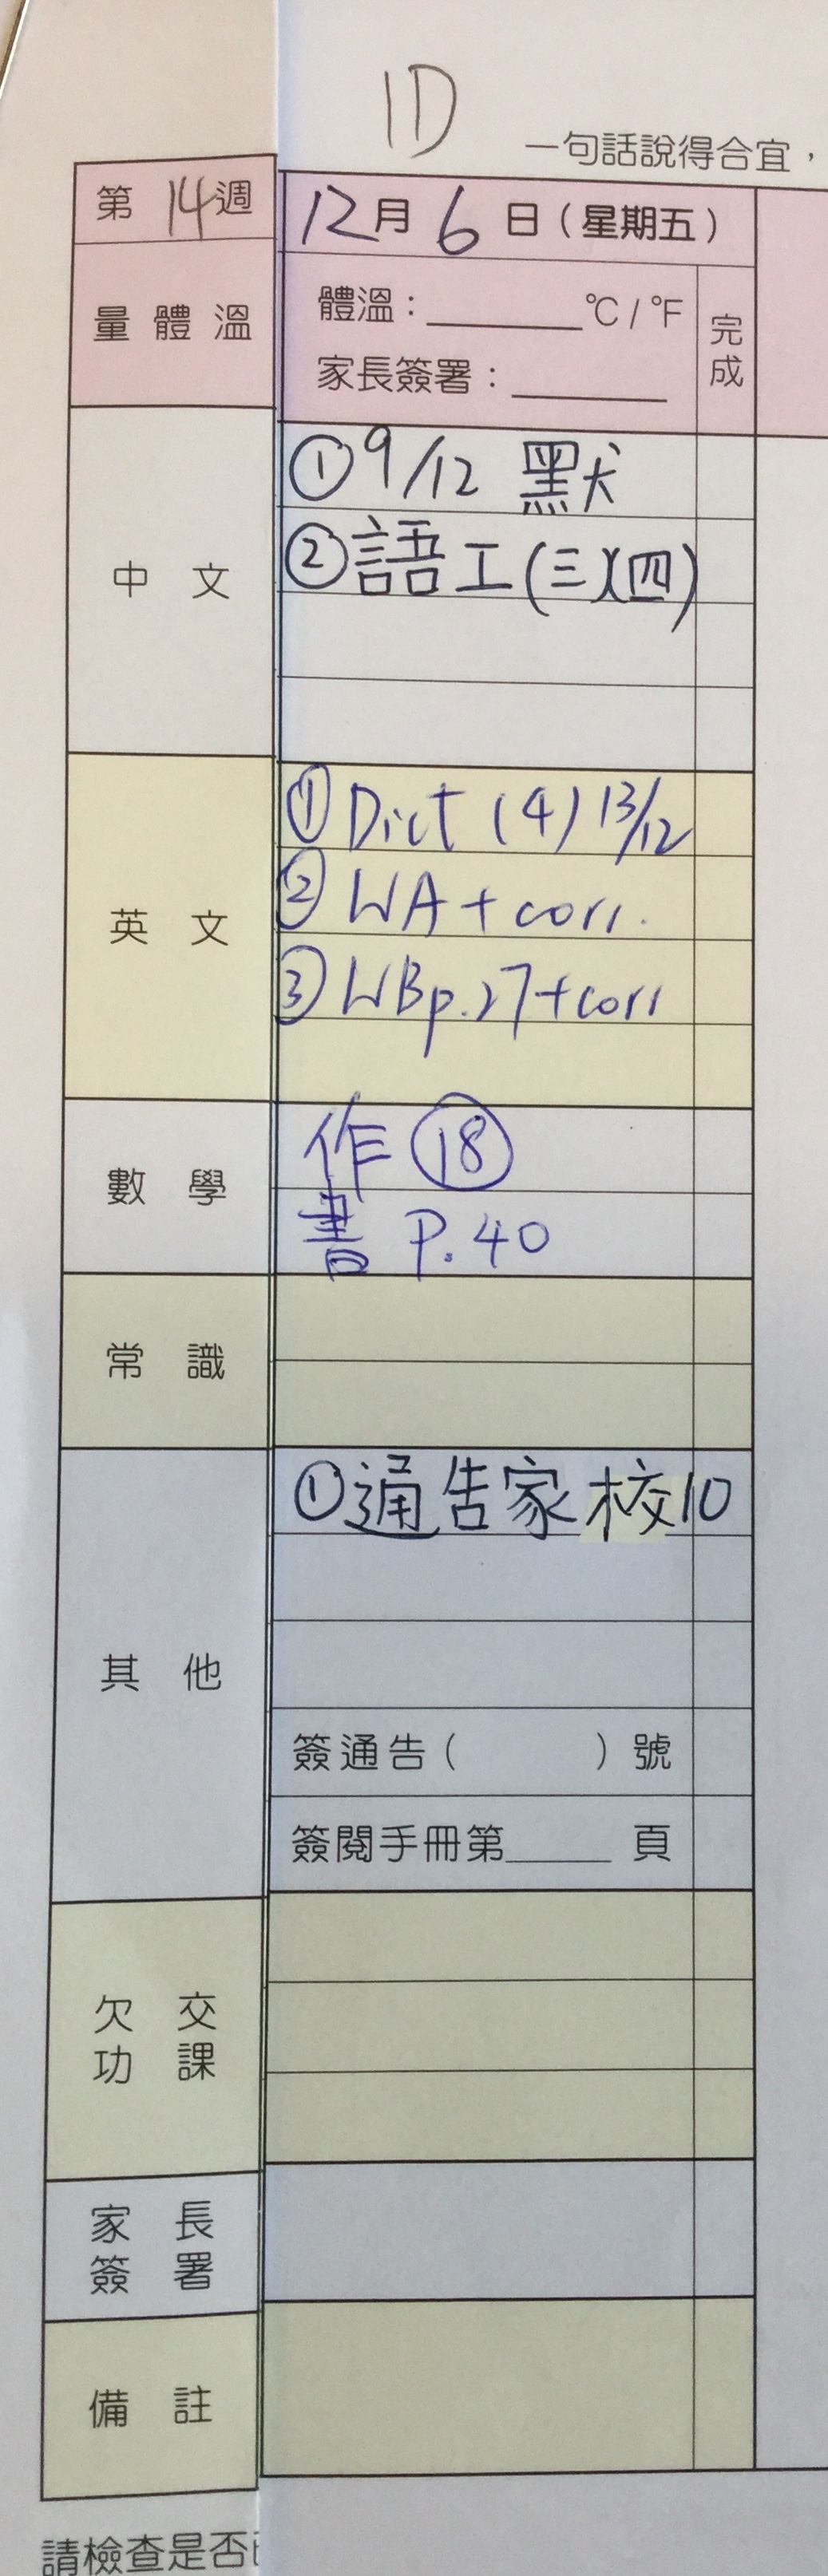 1D
一句話說得合宜，
第 14 週
12月 6 日（星期五）
量體溫
體溫：______℃/℉
家長簽署：______
完成
中文
①9/12 默
②語工(三)(四)
英文
① Dict (4) 13/12
② WA + corr.
③ WBp.27+corr
數學
作 ⑱
書 P.40
常識
其他
①通告家校10
簽通告（　　　）號
簽閱手冊第_____ 頁
欠交
功課
家長
簽署
備註
請檢查是否